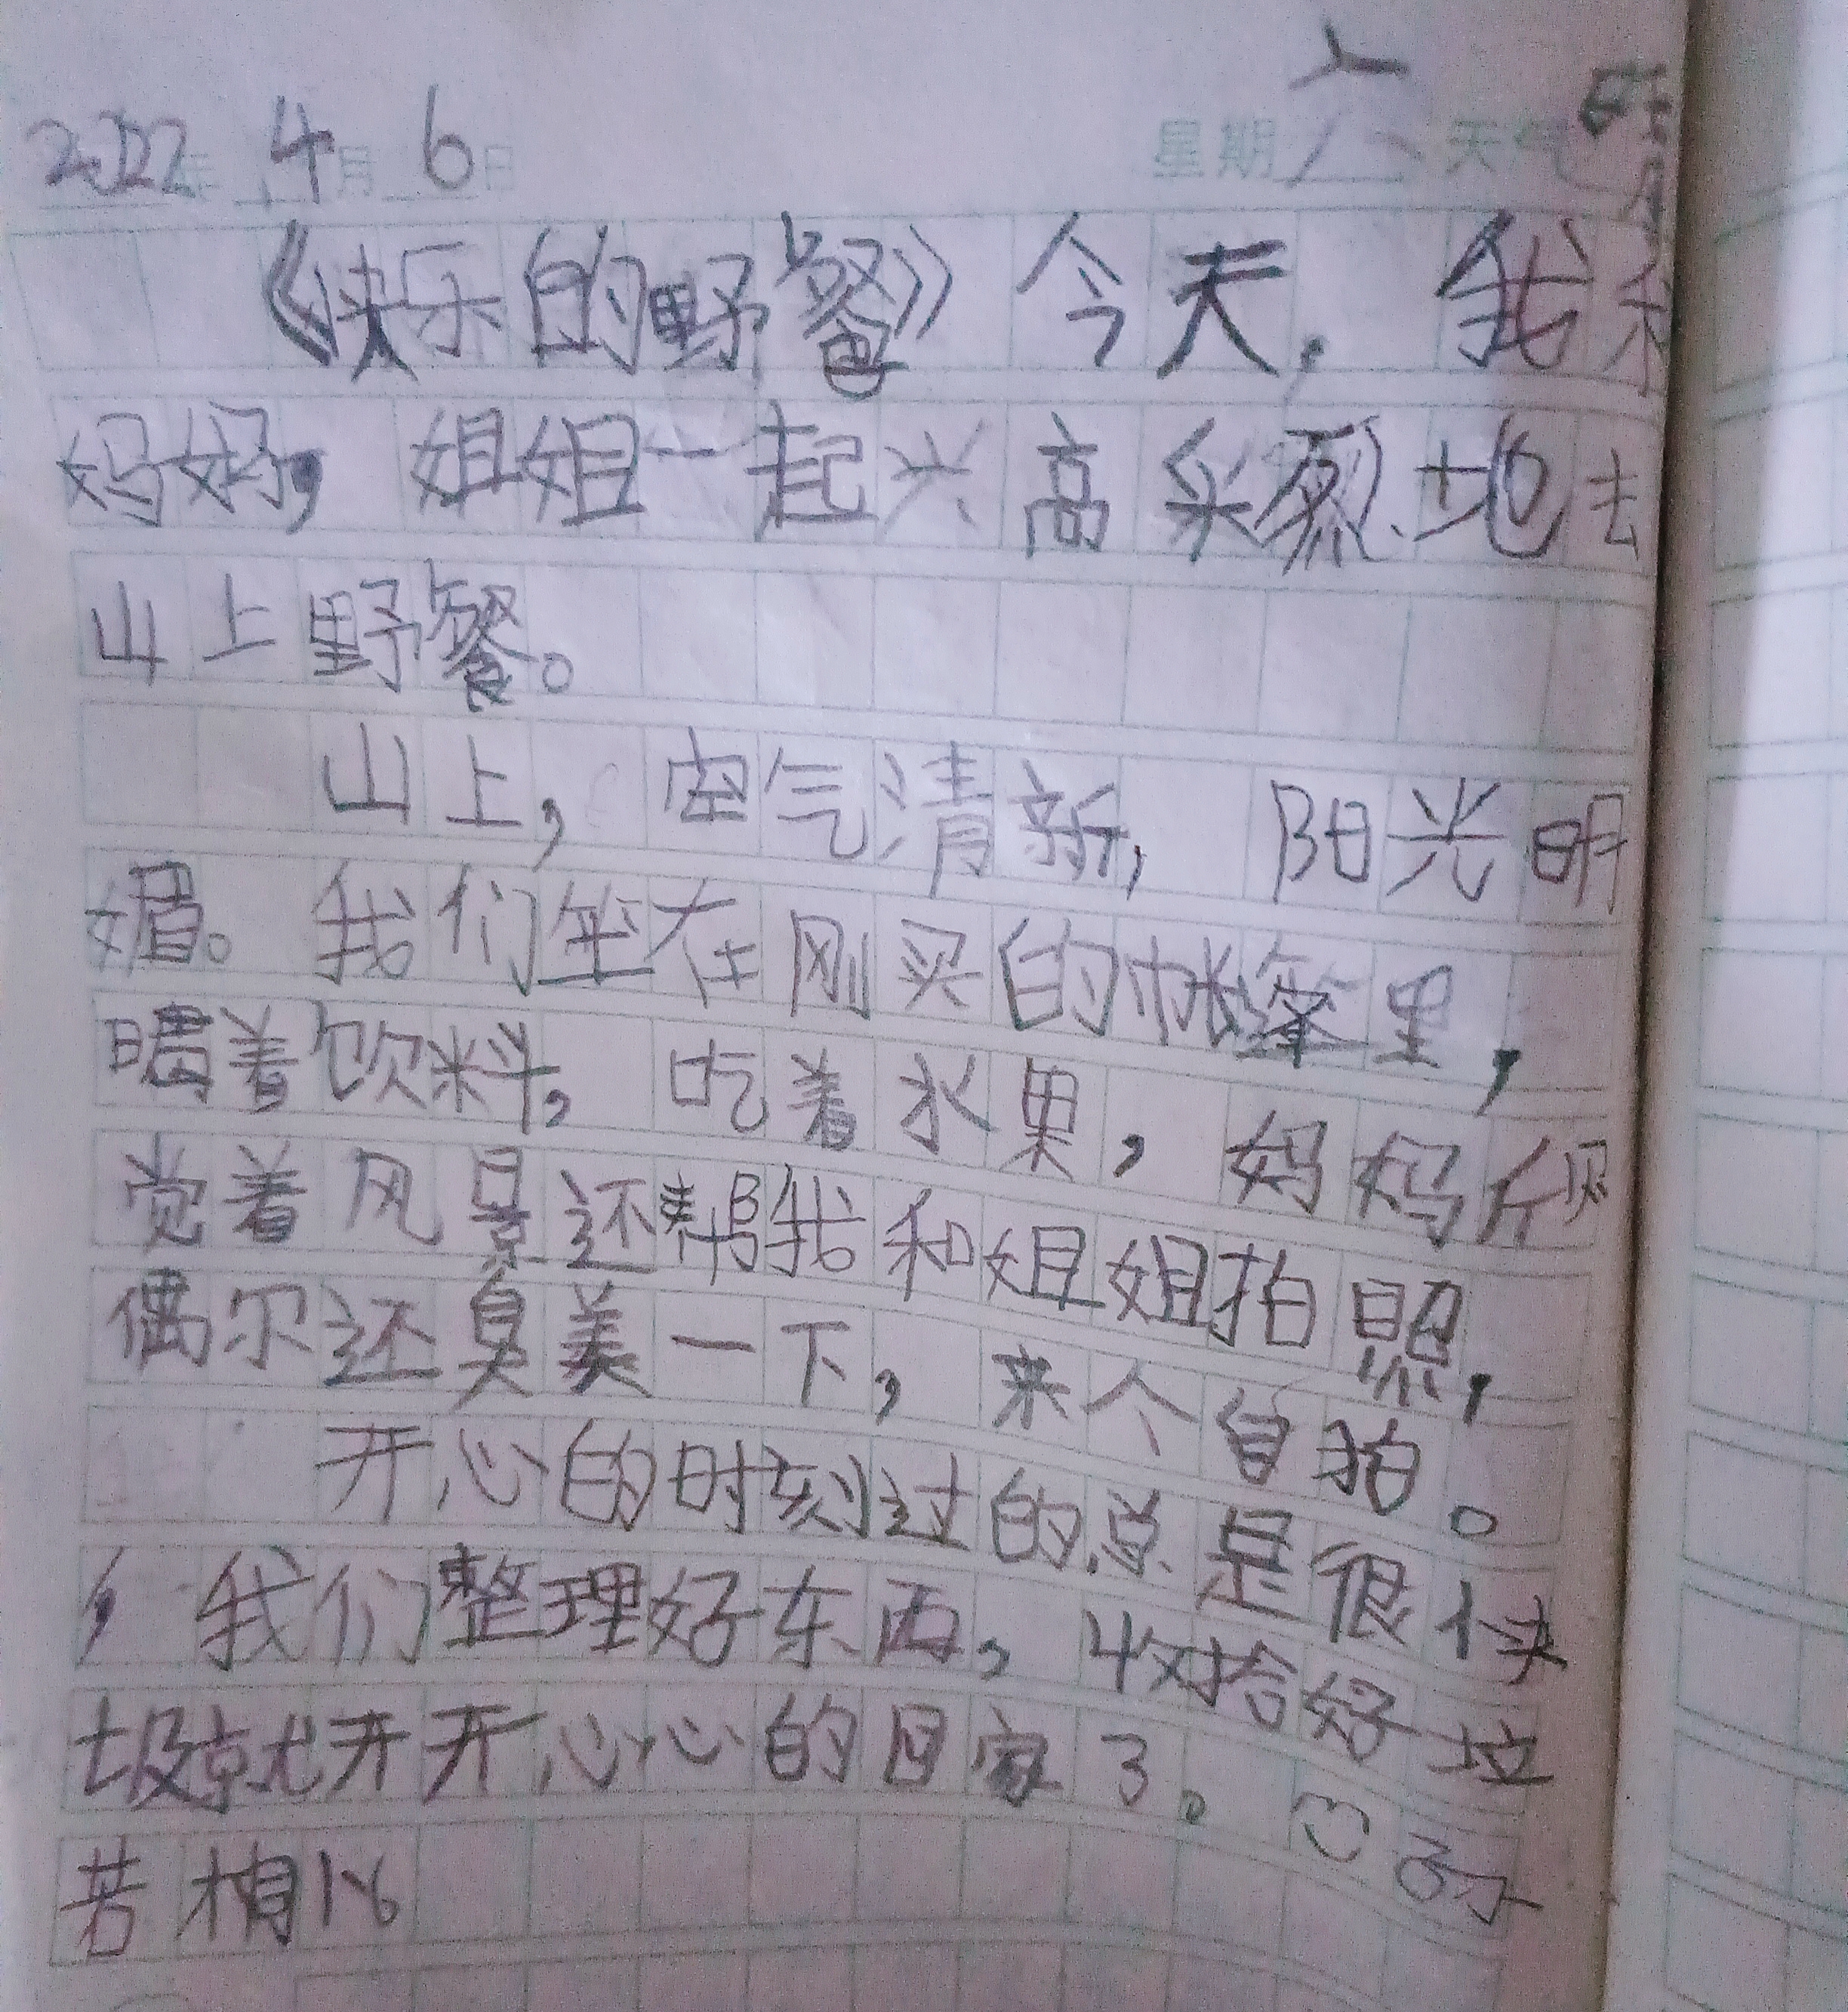 2022年 4月 6日 星期六 天气
《快乐的野餐》今天，我和
妈妈，姐姐一起兴高采烈地去
山上野餐。
山上，空气清新，阳光明
媚。我们坐在刚买的帐篷里，
喝着饮料，吃着水果，妈妈欣
觉着风景还帮我和姐姐拍照，
偶尔还臭美一下，来个自拍。
开心的时刻过的总是很快
，我们整理好东西，收拾好垃
圾就开开心心的回家了。